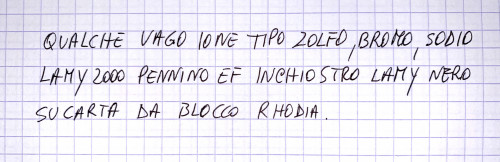 QUALCHE VAGO IONE TIPO ZOLFO, BROMO, SODIO
LAMY 2000 PENNINO EF INCHIOSTRO LAMY NERO
SU CARTA DA BLOCCO RHODIA.